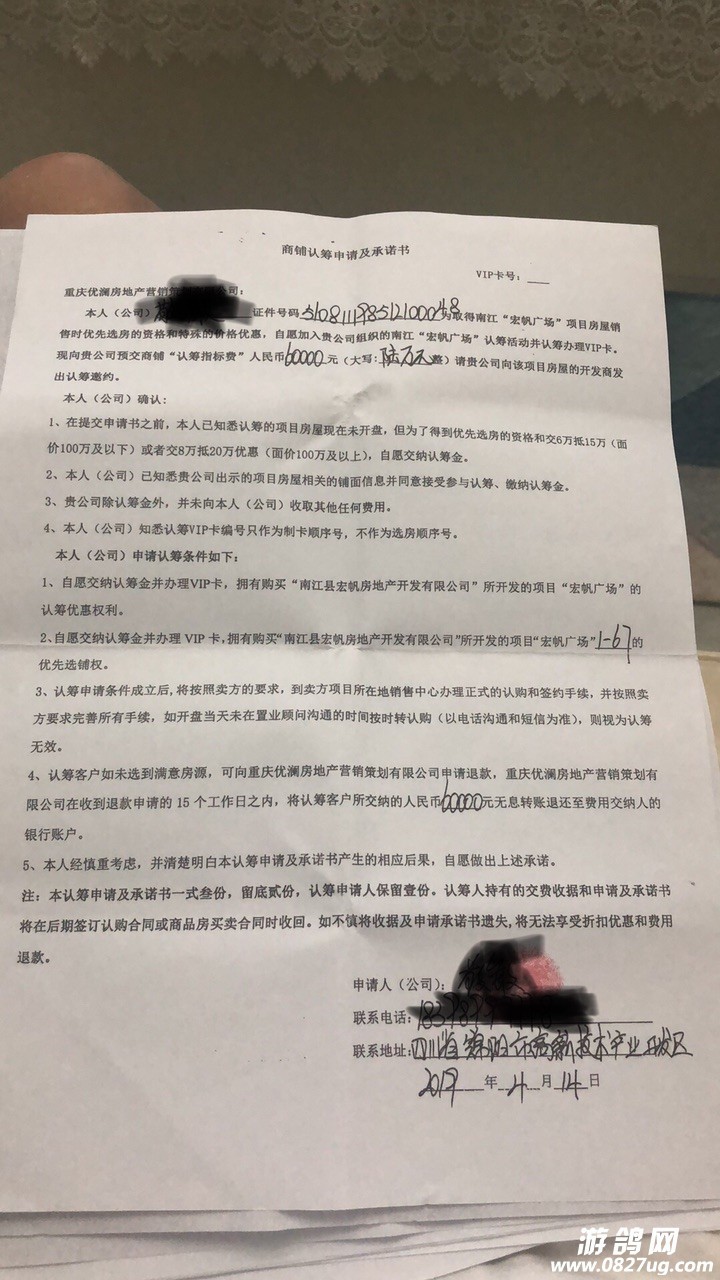 商铺认筹申请及承诺书
VIP卡号：
重庆优澜房地产营销策 公司：
本人（公司） 证件号码 为取得南江“宏帆广场”项目房屋销
售时优先选房的资格和特殊的价格优惠，自愿加入贵公司组织的南江“宏帆广场”认筹活动并认筹办理VIP卡。
现向贵公司预交商铺“认筹指标费”人民币60000元（大写：陆万元整）请贵公司向该项目房屋的开发商发
出认筹邀约。
本人（公司）确认：
1、在提交申请书之前，本人已知悉认筹的项目房屋现在未开盘，但为了得到优先选房的资格和交6万抵15万（面
价100万及以下）或者交8万抵20万优惠（面价100万及以上），自愿交纳认筹金。
2、本人（公司）已知悉贵公司出示的项目房屋相关的铺面信息并同意接受参与认筹、缴纳认筹金。
3、贵公司除认筹金外，并未向本人（公司）收取其他任何费用。
4、本人（公司）知悉认筹VIP卡编号只作为制卡顺序号，不作为选房顺序号。
本人（公司）申请认筹条件如下：
1、自愿交纳认筹金并办理VIP卡，拥有购买“南江县宏帆房地产开发有限公司”所开发的项目“宏帆广场”的
认筹优惠权利。
2、自愿交纳认筹金并办理 VIP 卡，拥有购买“南江县宏帆房地产开发有限公司”所开发的项目“宏帆广场”1-67的
优先选铺权。
3、认筹申请条件成立后，将按照卖方的要求，到卖方项目所在地销售中心办理正式的认购和签约手续，并按照卖
方要求完善所有手续，如开盘当天未在置业顾问沟通的时间按时转认购（以电话沟通和短信为准），则视为认筹
无效。
4、认筹客户如未选到满意房源，可向重庆优澜房地产营销策划有限公司申请退款，重庆优澜房地产营销策划有
限公司在收到退款申请的 15 个工作日之内，将认筹客户所交纳的人民币60000元无息转账退还至费用交纳人的
银行账户。
5、本人经慎重考虑，并清楚明白本认筹申请及承诺书产生的相应后果，自愿做出上述承诺。
注：本认筹申请及承诺书一式叁份，留底贰份，认筹申请人保留壹份。认筹人持有的交费收据和申请及承诺书
将在后期签订认购合同或商品房买卖合同时收回。如不慎将收据及申请承诺书遗失，将无法享受折扣优惠和费用
退款。
申请人（公司）：
联系电话：
联系地址：四川省绵阳市高新技术产业开发区
2019 年 4 月 14 日
游鸽网
www.0827ug.com